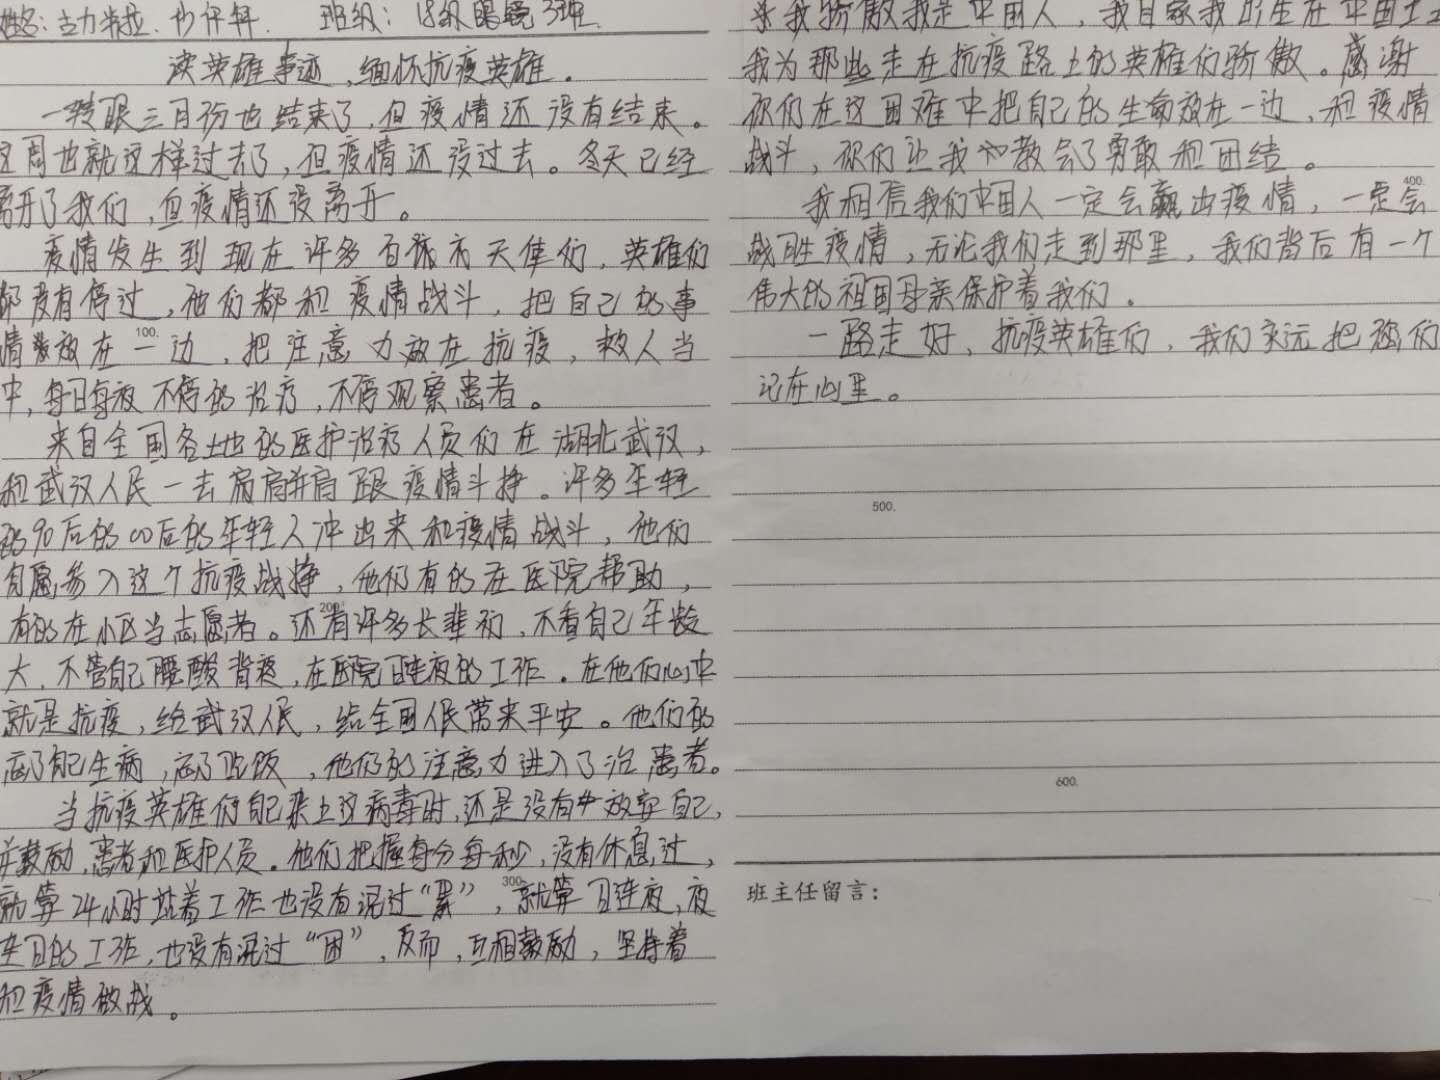 姓名：古力米拉． 班级：18级眼镜3班
读英雄事迹，缅怀抗疫英雄。
一转眼三月份也结束了，但疫情还没有结束。
这周也就这样过去了，但疫情还没过去。冬天已经
离开了我们，但疫情还没离开。
疫情发生到现在许多白衣天使们，英雄们
都没有停过，他们都和疫情战斗，把自己的事
情放在一边，把注意力放在抗疫，救人当
中，每日每夜不停的治疗，不停观察患者。
来自全国各土地的医护治疗人员们在湖北武汉，
和武汉人民一去肩肩并肩跟疫情斗挣。许多年轻
的90后的00后的年轻人冲出来和疫情战斗，他们
自愿参入这个抗疫战挣，他们有的在医院帮助，
有的在小区当志愿者。还有许多长辈们，不看自己年龄
大，不管自己腰酸背疼，在医院日连夜的工作。在他们心中
就是抗疫，给武汉人民，给全国人民带来平安。他们的
忘了自己生病，忘了吃饭，他们的注意力进入了治患者。
当抗疫英雄们自己染上这病毒时，还是没有放弃自己，
并鼓励，患者和医护人员。他们把握每分每秒，没有休息过，
就算24小时站着工作也没有说过“累”，就算日连夜，夜
连日的工作，也没有说过“困”，反而，互相鼓励，坚持着
和疫情做战。
我骄傲我是中国人，我自豪我的生在中国土
我为那些走在抗疫路上的英雄们骄傲。感谢
你们在这困难中把自己的生命放在一边，和疫情
战斗，你们让我和教会了勇敢和团结。
我相信我们中国人一定会赢出疫情，一定会
战胜疫情，无论我们走到那里，我们背后有一个
伟大的祖国母亲保护着我们。
一路走好、抗疫英雄们，我们永远把你们
记在心里。
100.
200.
300.
400.
500.
600.
班主任留言：